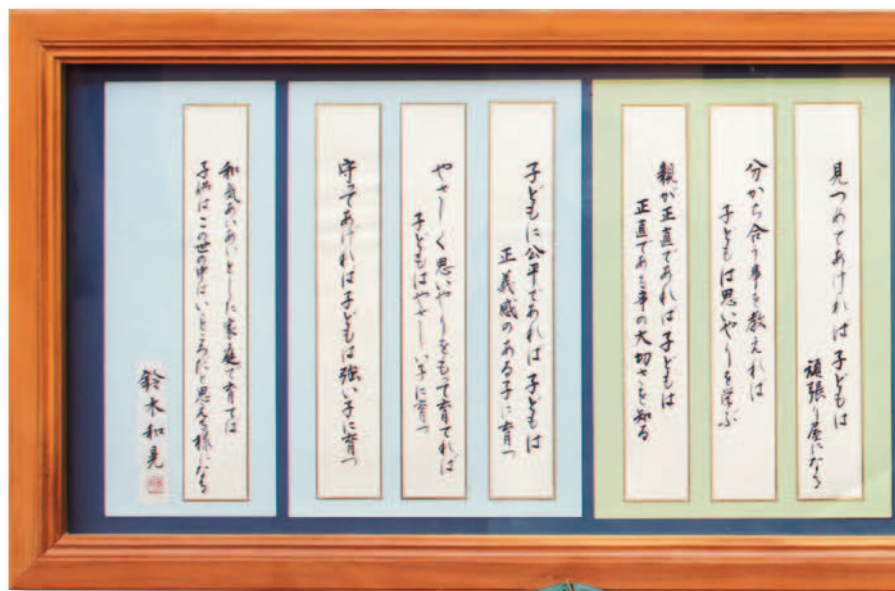 見つめてあければ子どもは
頑張り屋になる
分かち合う事を教えれば
子どもは思いやりを学ぶ
親が正直であれば子どもは
正直である事の大切さを知る
子どもに公平であれば子どもは
正義感のある子に育つ
やさしく思いやりをもって育てれば
子どもはやさしい子に育つ
守ってあければ子どもは強い子に育つ
和気あいあいとした家庭で育てば
子供はこの世の中はいいところだと思える様になる
鈴木和晃